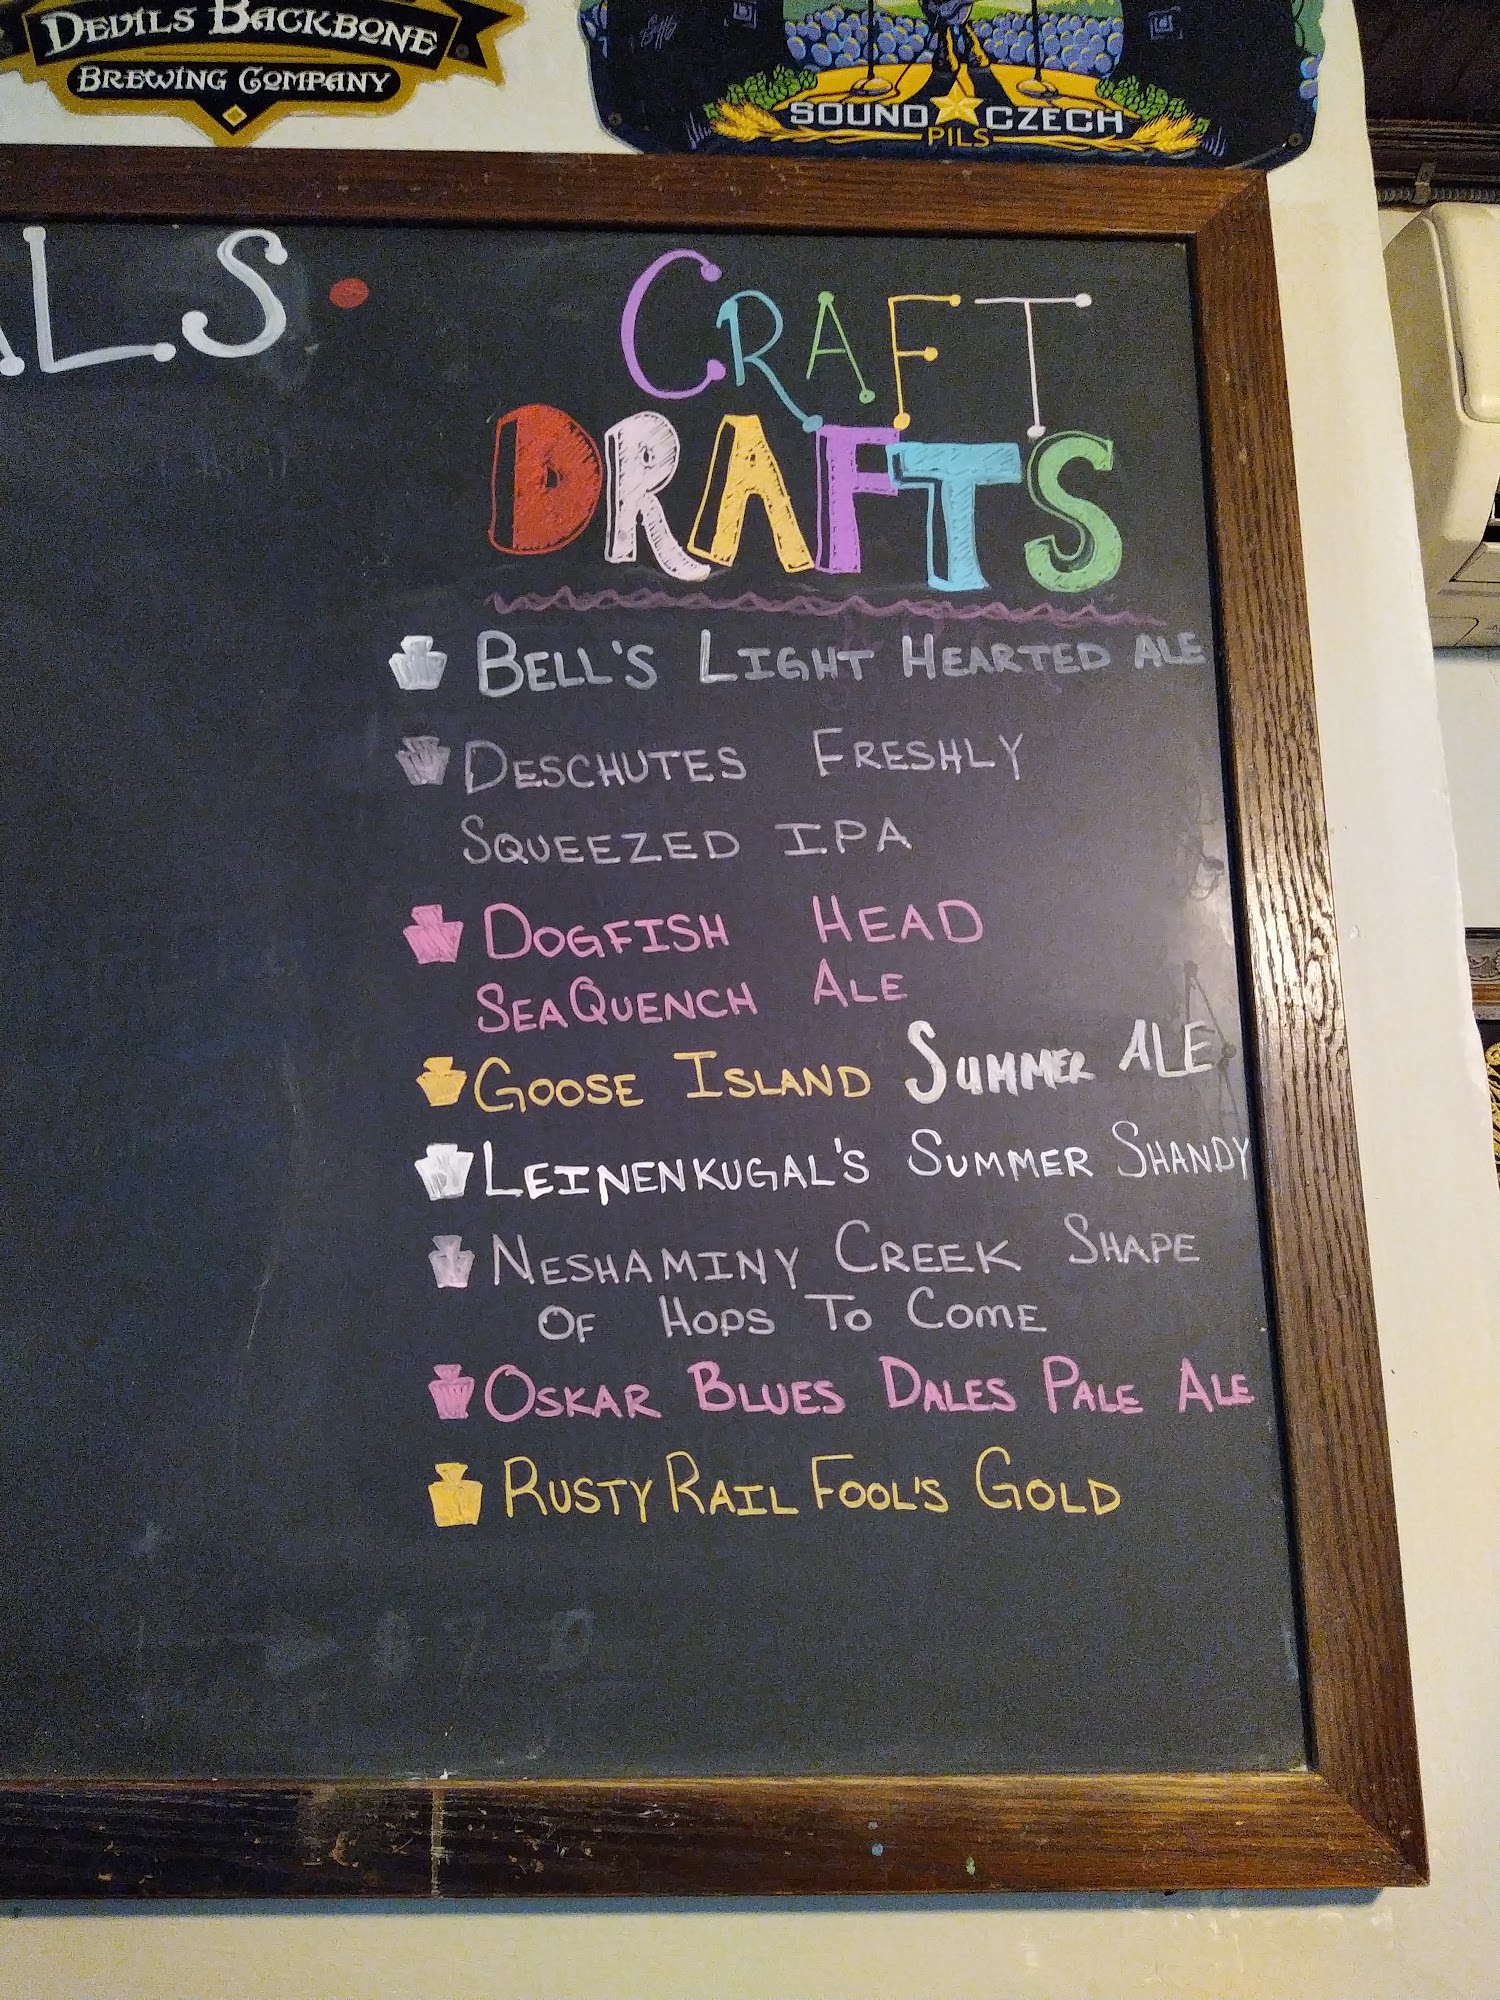 DEVILS BACKBONE
BREWING COMPANY
SOUND CZECH
PILS
ALS
CRAFT
DRAFTS
BELL'S LIGHT HEARTED ALE
DESCHUTES FRESHLY
SQUEEZED IPA
DOGFISH HEAD
SEAQUENCH ALE
GOOSE ISLAND SUMMER ALE
LEINENKUGAL'S SUMMER SHANDY
NESHAMINY CREEK SHAPE
OF HOPS TO COME
OSKAR BLUES DALES PALE ALE
RUSTY RAIL FOOL'S GOLD